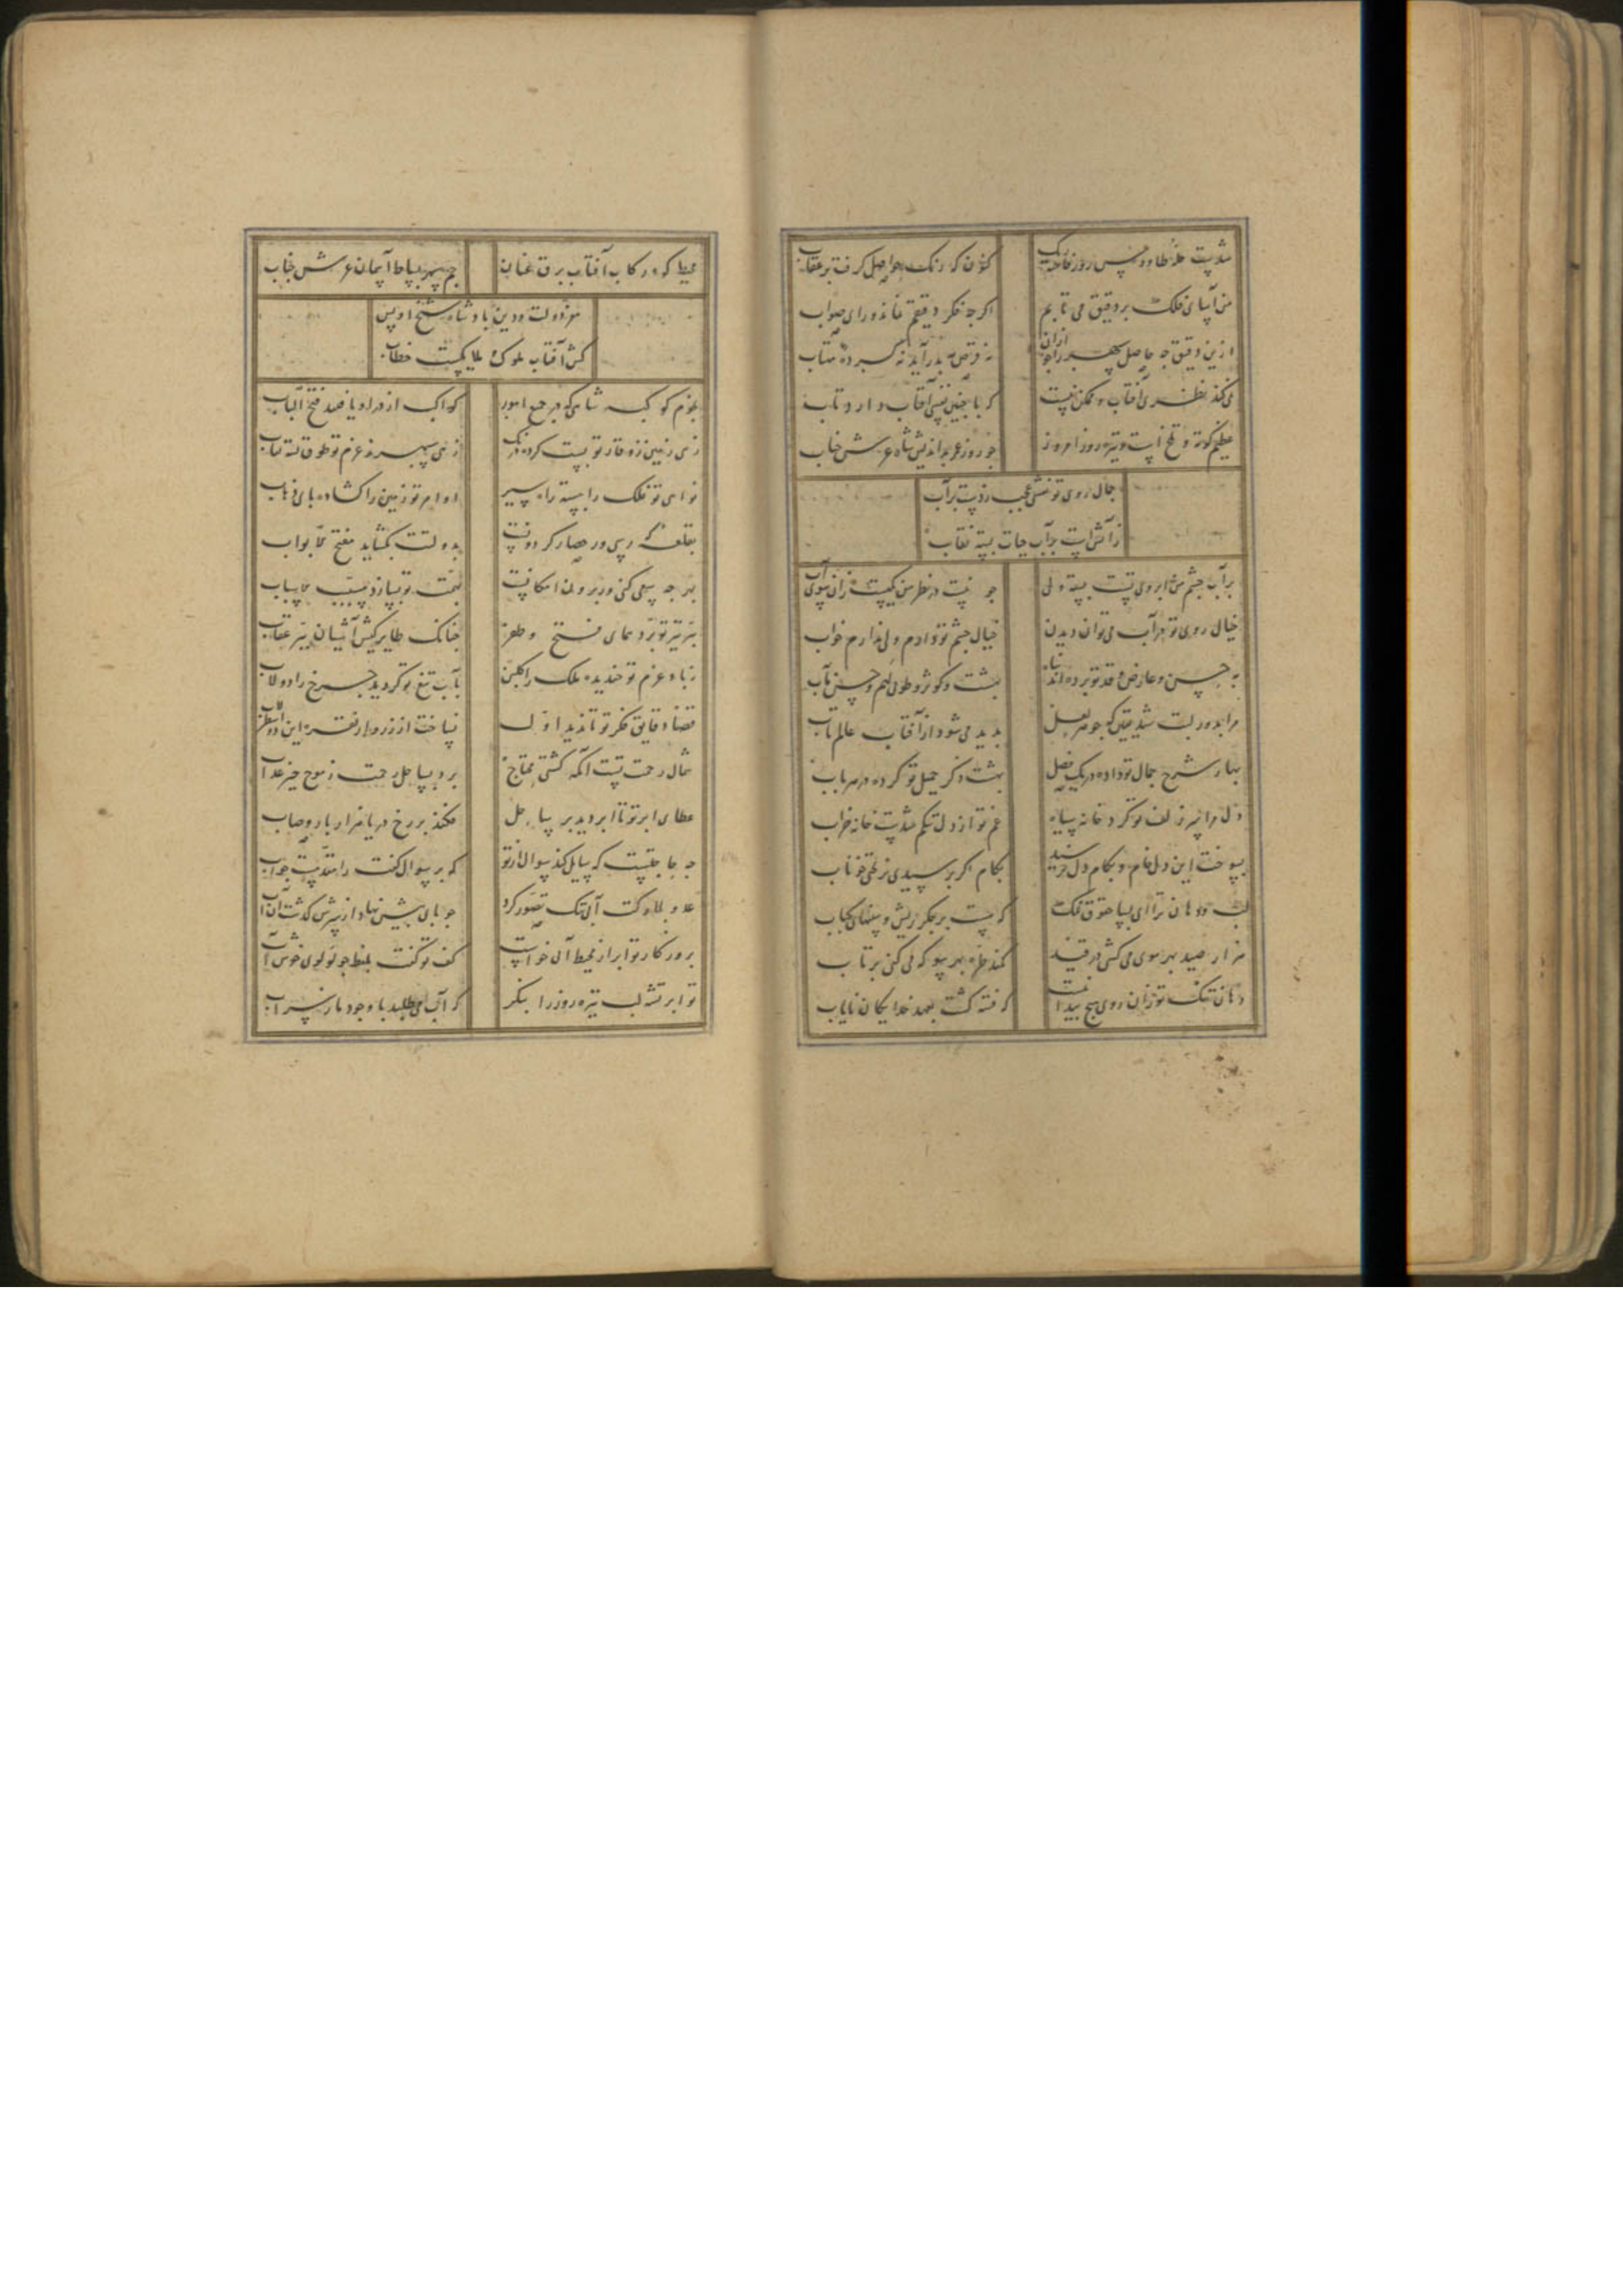 کنون که رنگ حواصل گرفت پر عقاب
من آسیای فلک بر دقیق می تابم
اگر چه فکر دقیقم نماند و رای صواب
ازین دقیق چه حاصل سپهر را جو ازان
نه قرص مه بدر آید نه گرده مهتاب
نمی کند نظری آفتاب و ممکن نیست
که با چنین نفسی آفتاب دارد تاب
چو روز عمر بداندیش شاه عرش جناب
جمال روی تو نقشی عجب زدست بر آب
ز آتش است بر آب حیات بسته نقاب
بر آب چشم منش ابروی تست بسته ولی
چو نیست در نظر من یکیست زان سوی آب
خیال روی تو در آب می توان دیدن
خیال چشم تو دارم ولی ندارم خواب
به حسن و عارض و قد تو برده اند پناه
بهشت و کوثر و طوبی لهم و حسن مآب
مرا بدور لبت شد یقین که جوهر لعل
پدید می شود از آفتاب عالم تاب
بهار شرح جمال تو داده در یک فصل
بهشت ذکر جمیل تو کرده در هر باب
دل مرا سر زلف تو کرد خانه سیاه
غم تو از دل تنگم شدست خانه خراب
بسوخت این دل خام و بکام دل نرسید
بکام اگر برسیدی نریختی خوناب
لب و دهان ترا ای بسا حقوق نمک
که هست بر جگر ریش و سینهای کباب
هزار صید بهر سوی می کشی در قید
کمند طره بهر سو که می کنی پرتاب
دهان تنگ تو زان روی هیچ پیدا نیست
که فتنه گشت بعهد خدایگان نایاب
محیط کوه رکاب آفتاب برق عنان
جم سپهر بساط آسمان عرش جناب
معز دولت و دین پادشاه شیخ اویس
کش آفتاب ملوک ملایکست خطاب
بعزم کوکبه شاهی که در جمیع امور
کواکب از در او یافتند فتح الباب
زهی زمین ز وقار تو بست کرده کمر
زهی سپهر ز عزم تو طوق بسته شتاب
نواهی تو فلک را ببسته راه مسیر
اوامر تو زمین را گشاده پای ذهاب
بدولتت بگشاید مفتح الابواب
بهر چه سعی کنی ور برون ز امکانست
بهمت تو بسازد مسبب الاسباب
بپر تیر تو پرد همای فتح و ظفر
چنانک طایر کیش آشیان بپر عقاب
ز باد عزم تو خندیده ملک را گلبن
بآب تیغ تو گردیده چرخ را دولاب
قضا دقایق فکر تو تا ندید اول
نساخت از زر و از نقره این دو اسطرلاب
شمال رحمت تست آنکه کشتی محتاج
برد بساحل رحمت ز موج خیز عذاب
عطای ابر تو تا ابر دید بر ساحل
فکند بر رخ دریا هزار بار و صاب
چه حاجتست که سایل کند سوال از تو
که بر سوال کفت را مقدمست جواب
عدو بلارکت آبی تنک تصور کرد
چو پای پیش نهاد از سرش گذشت آن آب
بروزگار تو ابر از محیط آبی خواست
کف تو گفت بلفظ چو لولوی خوش آب
تو ابر تشنه لب تیره روز را بنگر
که آب می طلبد با وجود ما ز سراب